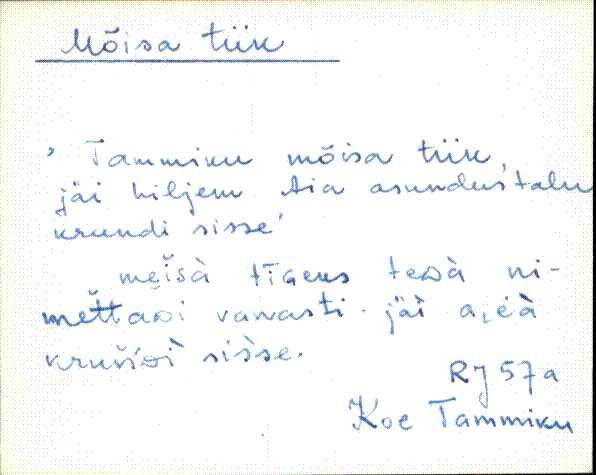 Mõisa tiik
' Tammiku mõisa tiik,
jäi hiljem Aia asundustalu
krundi sisse'
mẹišà tīGeus teᴅà ni-
vanasti. jäì
sìsse.
RJ 57a
Koe Tammiku